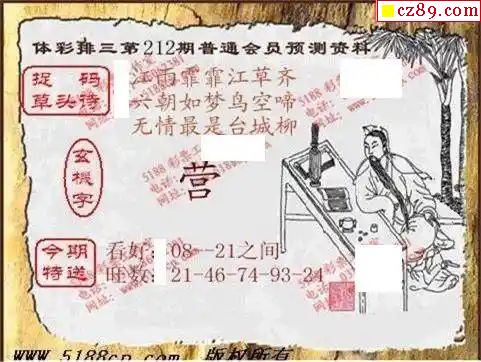 cz89.com
体彩排三第212期普通会员预测资料
捉码
草头诗
江雨霏霏江草齐
六朝如梦鸟空啼
无情最是台城柳
玄機字
营
今期
特送
看好:08--21之间
旺数:21-46-74-93-24
www.5188cp.com 版权所有